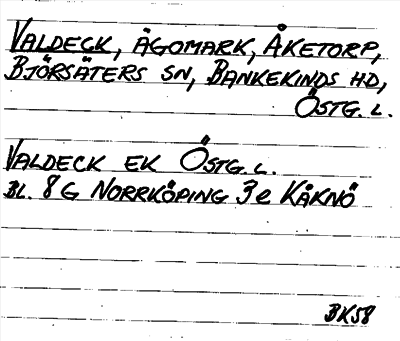 VALDECK, ÄGOMARK, ÅKETORP,
BJÖRSÄTERS SN, BANKEKINDS HD,
ÖSTG. L.
VALDECK EK ÖSTG. L.
BL. 8G NORRKÖPING 3e KÅKNÖ
BK58